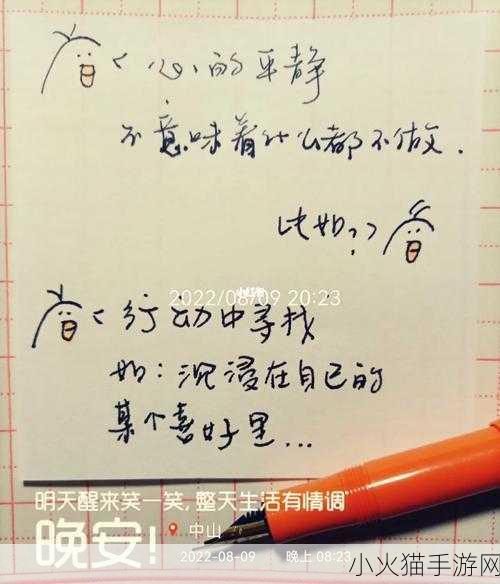 心的平静
不意味着什么都不做.
比如??
2022/08/09 20:23
行动中寻找
如：沉浸在自己的
某个喜好里...
明天醒来笑一笑,整天生活有情调~
晚安!
中山
2022-08-09 晚上 08:23
小火猫手游网